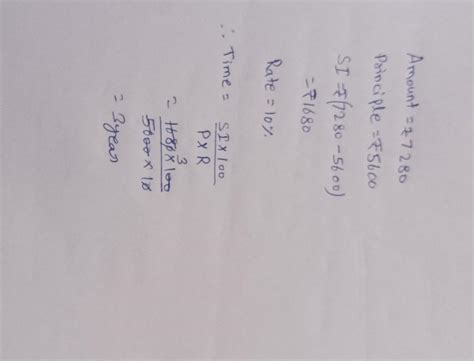 Amount = ₹7280
Principle = ₹5600
SI = ₹(7280 - 5600)
= ₹1680
Rate = 10%
∴ Time = SI × 100 / P × R
= 1680 3 × 100 / 5600 × 10
= 3 year